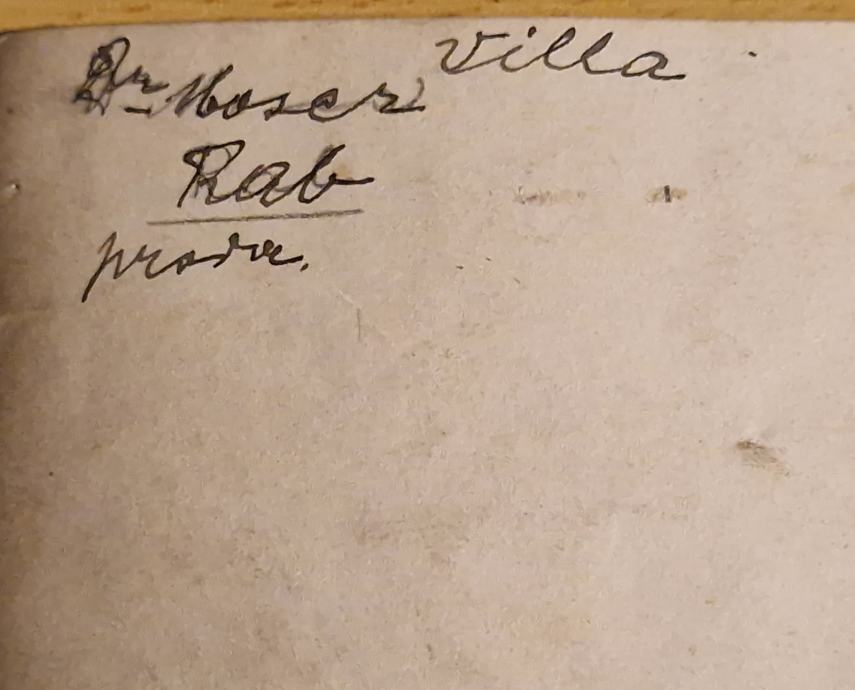 Dr Moser Villa
Rab